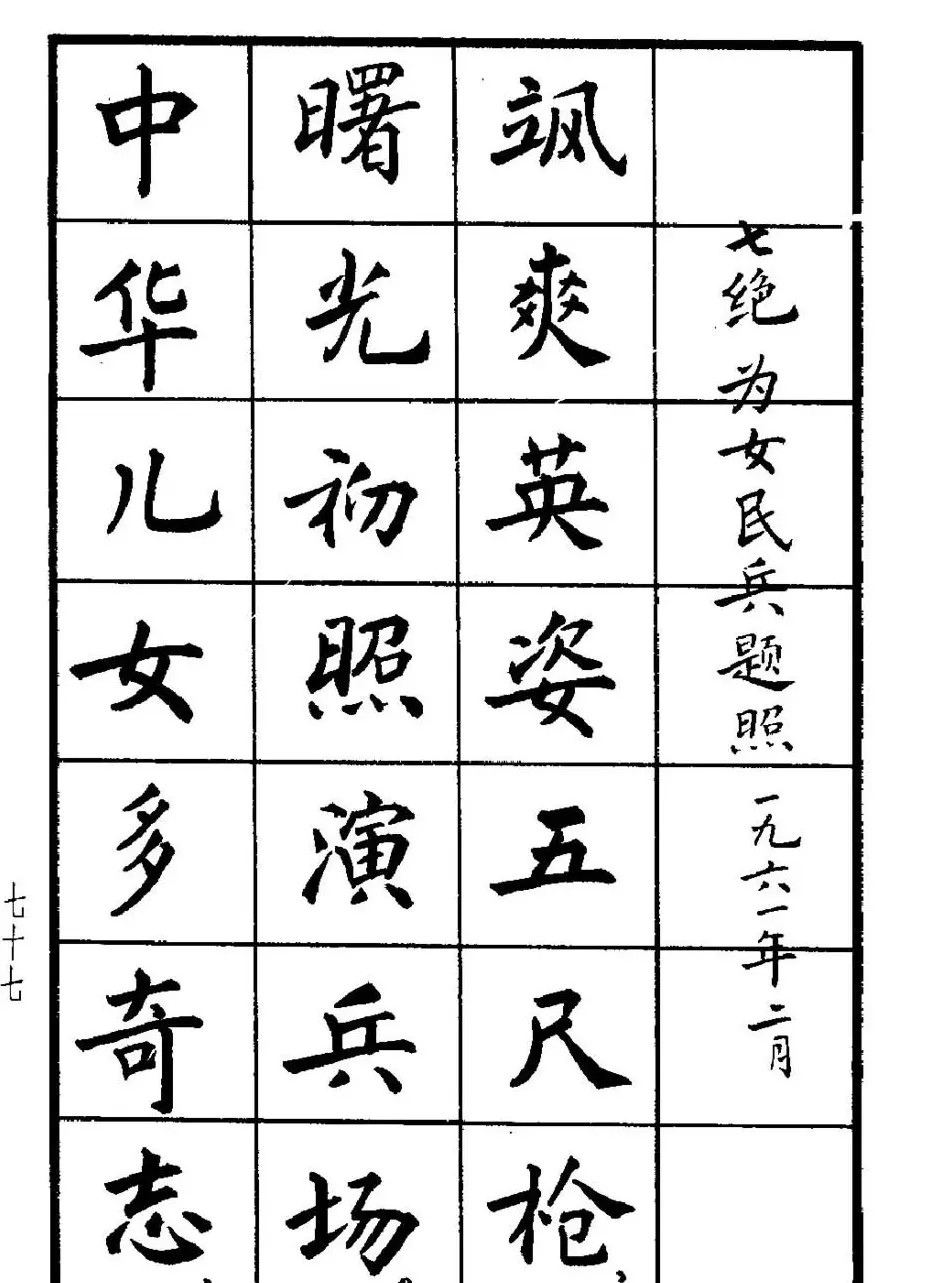 七绝 为女民兵题照 一九六一年二月
飒爽英姿五尺枪，
曙光初照演兵场。
中华儿女多奇志，
七十七